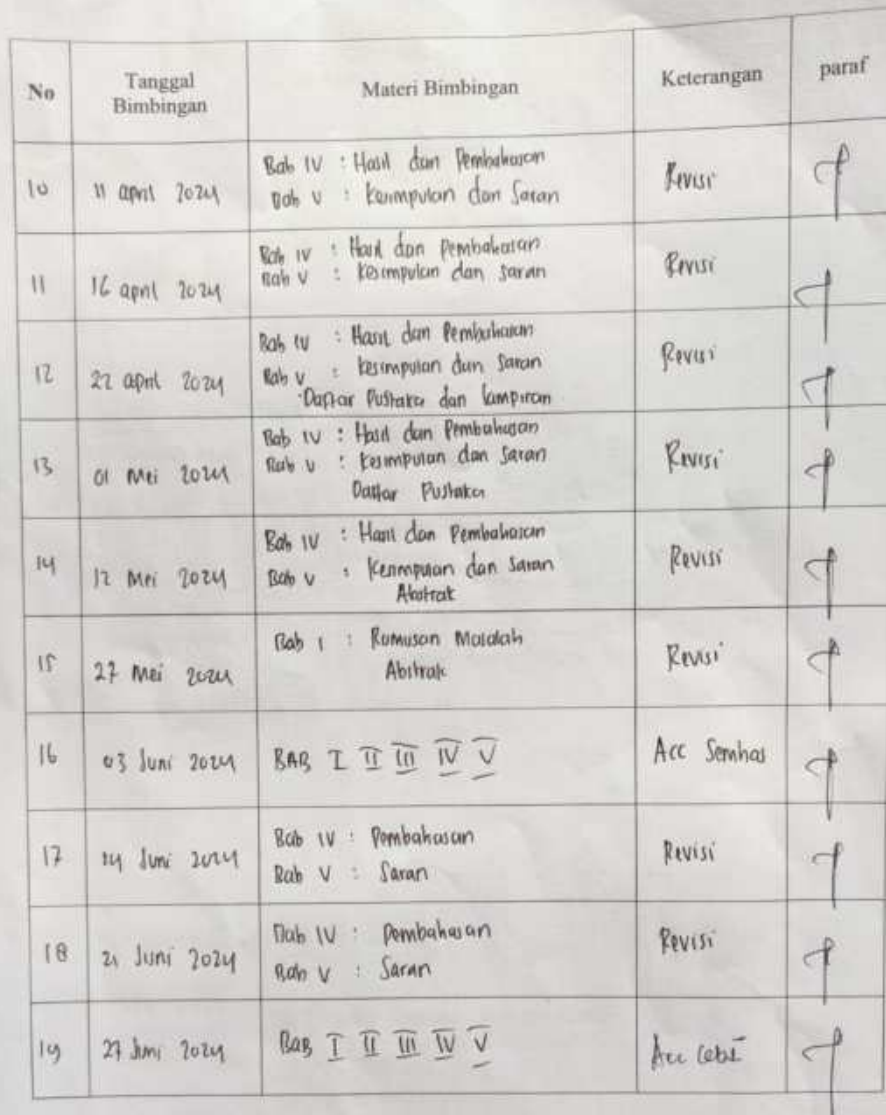 No Tanggal Bimbingan Materi Bimbingan Keterangan paraf
10 11 april 2024 Bab IV : Hasil dan Pembahasan Revisi
Bab V : Kesimpulan dan Saran
11 16 april 2024 Bab IV : Hasil dan Pembahasan Revisi
Bab V : Kesimpulan dan saran
12 22 april 2024 Bab IV : Hasil dan Pembahasan Revisi
Bab V : kesimpulan dan Saran
Daftar Pustaka dan lampiran
13 01 Mei 2024 Bab IV : Hasil dan Pembahasan Revisi
Bab V : Kesimpulan dan Saran
Daftar Pustaka
14 12 Mei 2024 Bab IV : Hasil dan Pembahasan Revisi
Bab V : Kesimpulan dan Saran
Abstrak
15 27 Mei 2024 Bab I : Rumusan Masalah Revisi
Abstrak
16 03 Juni 2024 BAB I II III IV V Acc Semhas
17 14 Juni 2024 Bab IV : Pembahasan Revisi
Bab V : Saran
18 21 Juni 2024 Bab IV : Pembahasan Revisi
Bab V : Saran
19 27 Juni 2024 BAB I II III IV V Acc